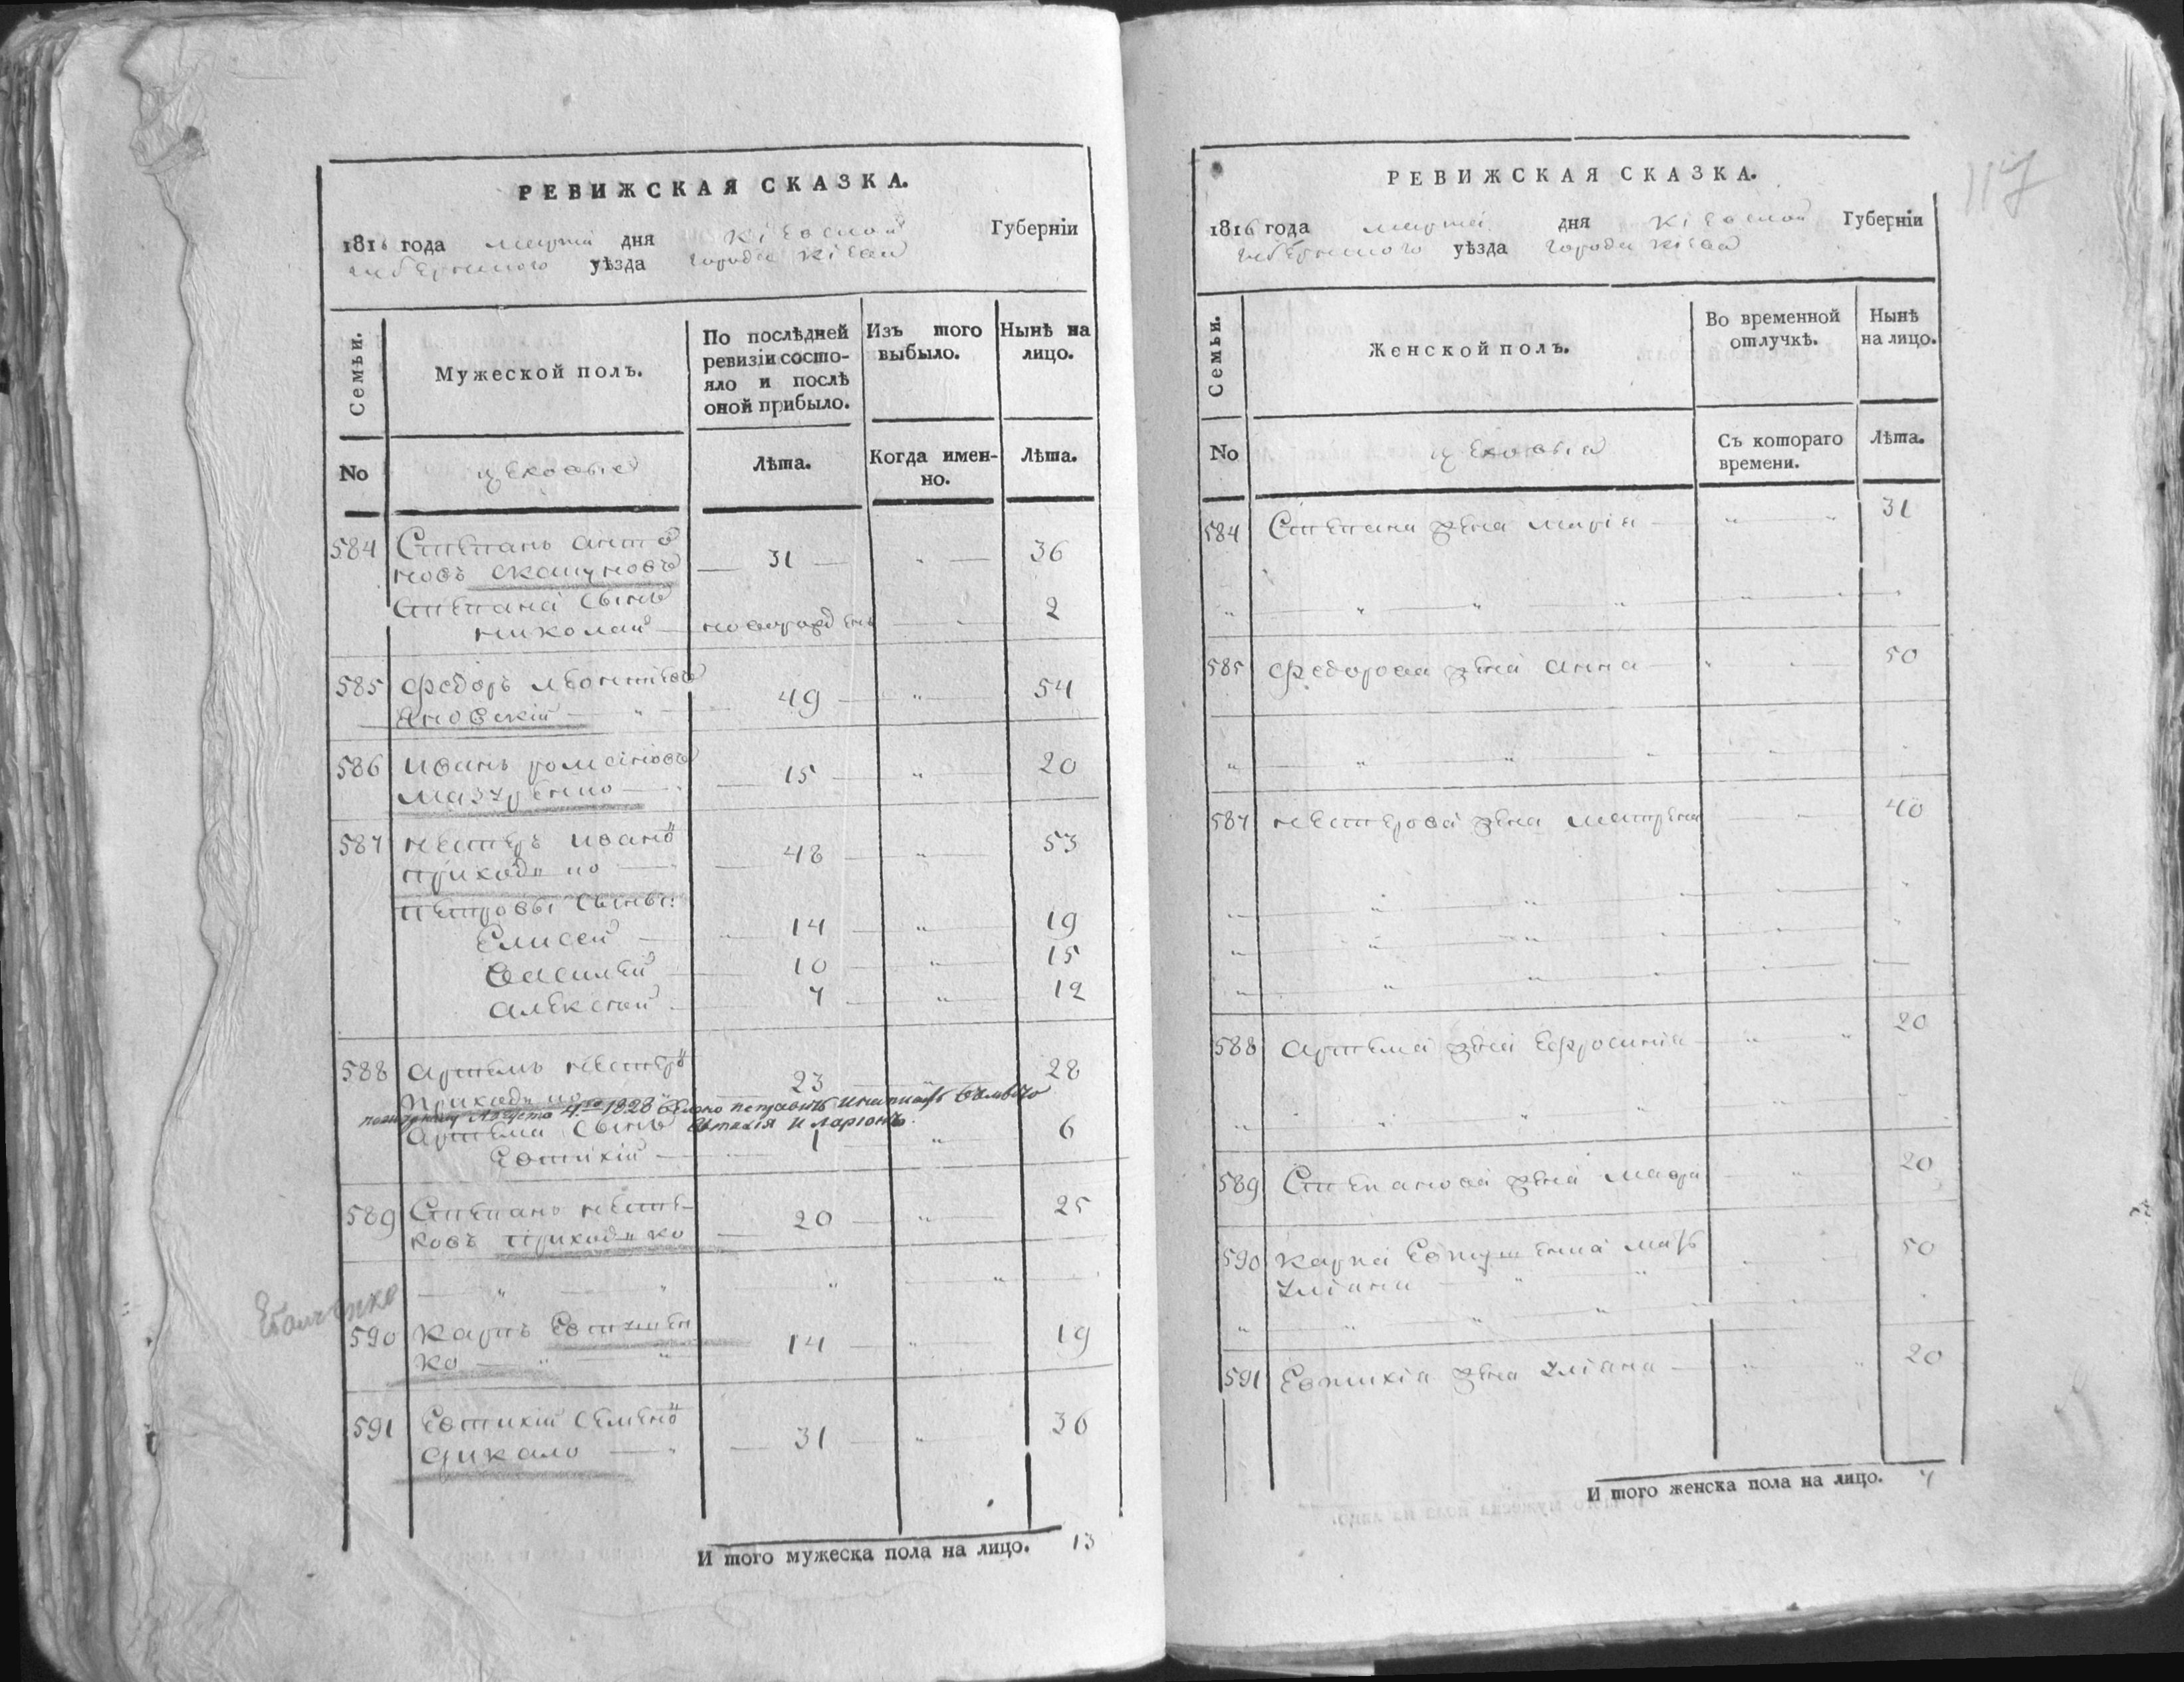 РЕВИЖСКАЯ СКАЗКА.
1816 года марта дня Кіевской Губерніи
уѣзда города Кіева
Семьи.
Мужеской полъ.
По послѣдней ревизіи состояло и послѣ оной прибыло.
Изъ того выбыло.
Нынѣ на лицо.
No
цеховые
Лѣта.
Когда именно.
Лѣта.
584 Степанъ Анто
новъ Скатуновъ 31 36
Степана сынъ
Николай новорожденъ 2
585 Федоръ Леонтіевъ
Яновскій 49 54
586 Иванъ Романовъ
Мазуренко 15 20
587 Нестеръ Ивановъ
Приходько 48 53
сыны:
Елисей 14 19
Василей 10 15
Алексей 7 12
588 Артемъ Нестеровъ
Приходько 23 28
Августа 1828
Артема сынъ Евтихія Иларіонъ
Евтихій 1 6
589 Степанъ Несте-
ровъ Приходько 20 25
590 Карпъ Евтушен
ко 14 19
591 Евтихій Семеновъ
Дикало 31 36
И того мужеска пола на лицо. 13
117
РЕВИЖСКАЯ СКАЗКА.
1816 года марта дня Кіевской Губерніи
уѣзда города Кіева
Семьи.
Женской полъ.
Во временной отлучкѣ.
Нынѣ на лицо.
No
цеховые
Съ котораго времени.
Лѣта.
584 Степана жена Марія 31
585 Федорова жена Анна 50
587 Нестерова жена Матрена 40
588 Артема жена Ефросинія 20
589 Степанова жена Мавра 20
590 Карпа Евтушенка мать 50
Уліана
591 Евтихія жена Уліана 20
И того женска пола на лицо. 7